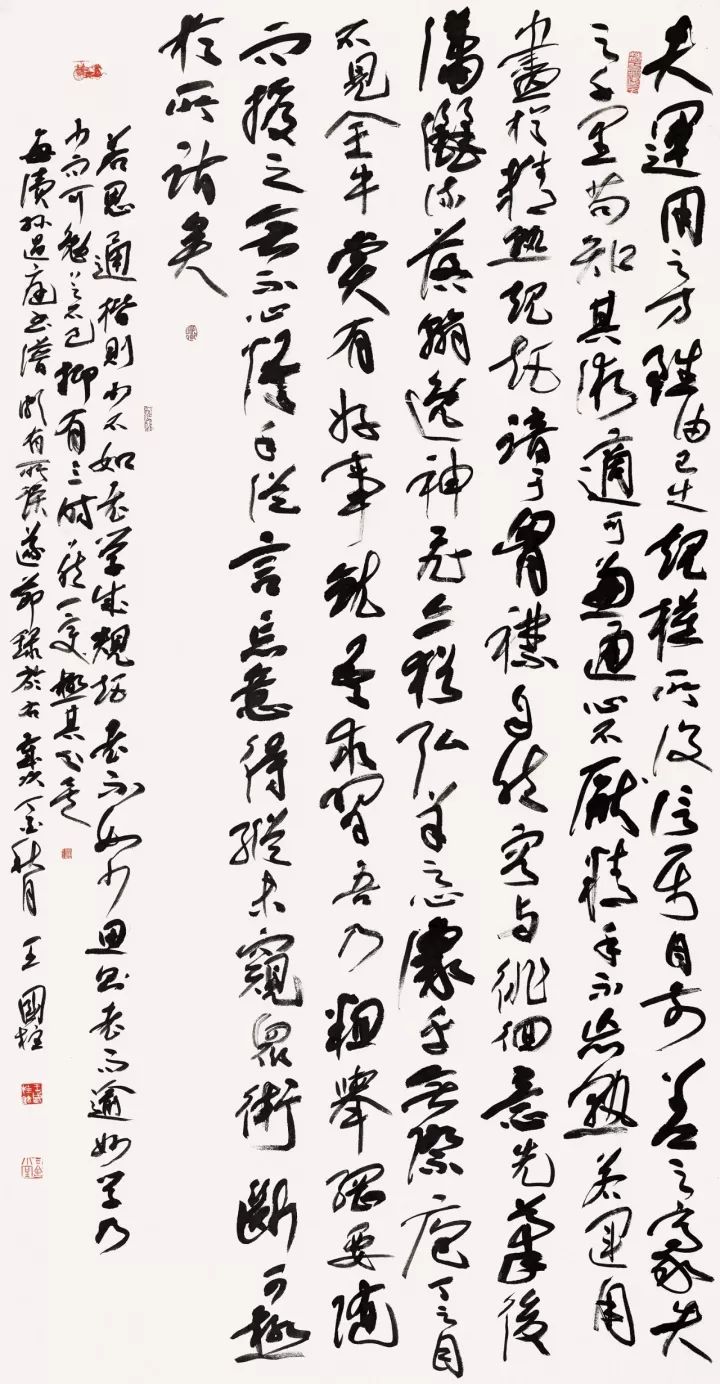 夫運用之方雖由己出規模所設信屬目前差之豪失
之千里苟知其術適可兼通心不厭精手不忘熟若運用
盡於精熟規矩諳于胸襟自然容與徘徊意先筆後
瀟灑流落翰逸神飛亦猶弘羊之心豫乎無際庖丁之目
不見全牛嘗有好事就吾求習吾乃粗舉綱要隨
而授之無不心悟手從言忘意得縱未窺眾術斷可極
於所詣矣
若思通楷則少不如老學成規矩老不如少思則老而逾妙學乃
少而可勉勉之不已抑有三時時然一變極其分矣
每讀孫過庭書譜頗有所獲遂節錄於右歲次丁酉秋月王國柱